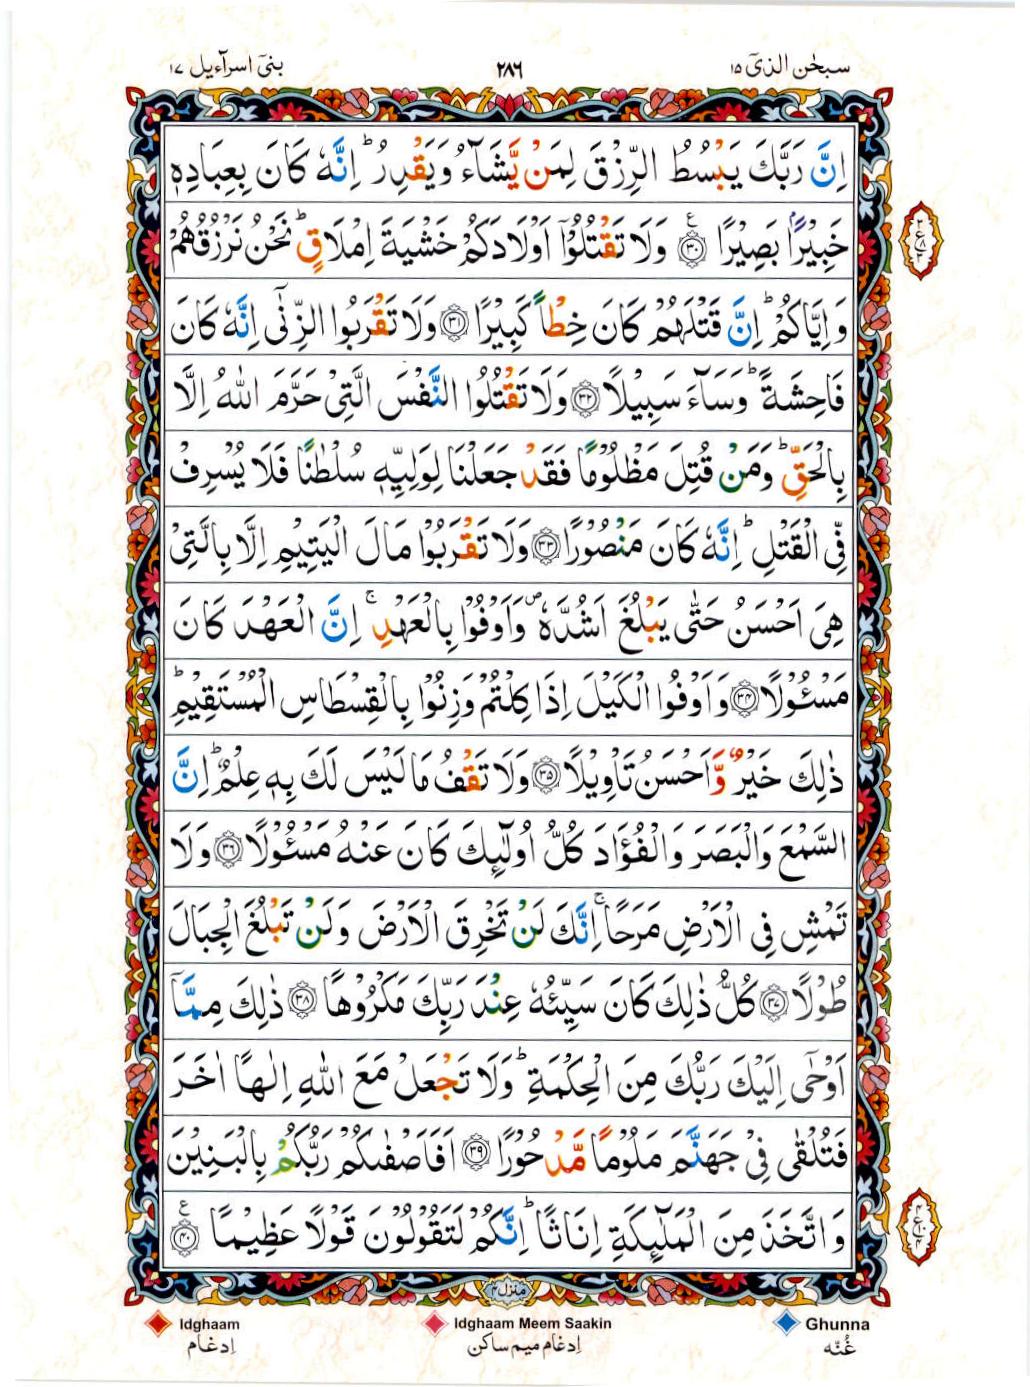 سبحٰن الذیٓ ١٥
٢٨٦
بنیٓ اسرآءیل ١٧
اِنَّ رَبَّكَ يَبْسُطُ الرِّزْقَ لِمَنْ يَّشَآءُ وَيَقْدِرُ ؕ اِنَّهٗ كَانَ بِعِبَادِهٖ
خَبِيْرًۢا بَصِيْرًا ۝٣٠ ع وَلَا تَقْتُلُوْۤا اَوْلَادَكُمْ خَشْيَةَ اِمْلَاقٍ ؕ نَحْنُ نَرْزُقُهُمْ
وَاِيَّاكُمْ ؕ اِنَّ قَتْلَهُمْ كَانَ خِطْاً كَبِيْرًا ۝٣١ وَلَا تَقْرَبُوا الزِّنٰٓى اِنَّهٗ كَانَ
فَاحِشَةً ؕ وَسَآءَ سَبِيْلًا ۝٣٢ وَلَا تَقْتُلُوا النَّفْسَ الَّتِيْ حَرَّمَ اللّٰهُ اِلَّا
بِالْحَقِّ ؕ وَمَنْ قُتِلَ مَظْلُوْمًا فَقَدْ جَعَلْنَا لِوَلِيِّهٖ سُلْطٰنًا فَلَا يُسْرِفْ
فِّي الْقَتْلِ ؕ اِنَّهٗ كَانَ مَنْصُوْرًا ۝٣٣ وَلَا تَقْرَبُوْا مَالَ الْيَتِيْمِ اِلَّا بِالَّتِيْ
هِيَ اَحْسَنُ حَتّٰى يَبْلُغَ اَشُدَّهٗ ۪ وَاَوْفُوْا بِالْعَهْدِ ۚ اِنَّ الْعَهْدَ كَانَ
مَسْـُٔوْلًا ۝٣٤ وَاَوْفُوا الْكَيْلَ اِذَا كِلْتُمْ وَزِنُوْا بِالْقِسْطَاسِ الْمُسْتَقِيْمِ ؕ
ذٰلِكَ خَيْرٌ وَّاَحْسَنُ تَاْوِيْلًا ۝٣٥ وَلَا تَقْفُ مَا لَيْسَ لَكَ بِهٖ عِلْمٌ ؕ اِنَّ
السَّمْعَ وَالْبَصَرَ وَالْفُؤَادَ كُلُّ اُولٰٓئِكَ كَانَ عَنْهُ مَسْـُٔوْلًا ۝٣٦ وَلَا
تَمْشِ فِي الْاَرْضِ مَرَحًا ۚ اِنَّكَ لَنْ تَخْرِقَ الْاَرْضَ وَلَنْ تَبْلُغَ الْجِبَالَ
طُوْلًا ۝٣٧ كُلُّ ذٰلِكَ كَانَ سَيِّئُهٗ عِنْدَ رَبِّكَ مَكْرُوْهًا ۝٣٨ ذٰلِكَ مِمَّاۤ
اَوْحٰۤى اِلَيْكَ رَبُّكَ مِنَ الْحِكْمَةِ ؕ وَلَا تَجْعَلْ مَعَ اللّٰهِ اِلٰهًا اٰخَرَ
فَتُلْقٰى فِيْ جَهَنَّمَ مَلُوْمًا مَّدْحُوْرًا ۝٣٩ اَفَاَصْفٰىكُمْ رَبُّكُمْ بِالْبَنِيْنَ
وَاتَّخَذَ مِنَ الْمَلٰٓئِكَةِ اِنَاثًا ؕ اِنَّكُمْ لَتَقُوْلُوْنَ قَوْلًا عَظِيْمًا ۝٤٠ ع
منزل ٤
Ghunna
Idghaam Meem Saakin
Idghaam
غُنّه
اِدغام میم ساکن
اِدغام